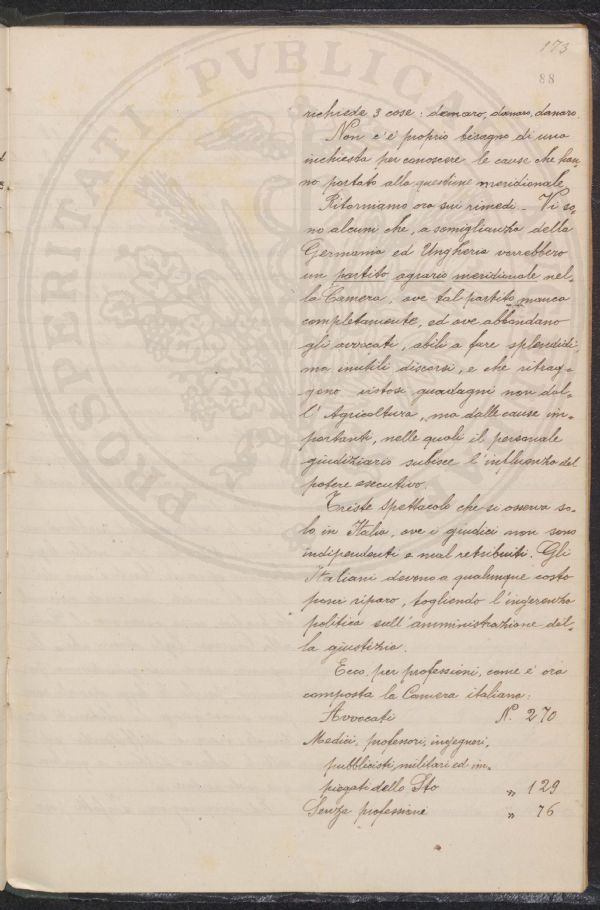 173
88
richiede 3 cose: danaro, danaro, danaro.
Non c'è proprio bisogno di una
inchiesta per conoscere le cause che han-
no portato alla questione meridionale.
Ritorniamo ora sui rimedi. Vi so-
no alcuni che, a somiglianza della
Germania ed Ungheria vorrebbero
un partito agrario meridionale nel-
la Camera, ove tal partito manca
completamente, ed ove abbondano
gli avvocati, abili a fare splendidi,
ma inutili discorsi, e che ritrag-
gono vistosi guadagni non dal-
l'Agricoltura, ma dalle cause im-
portanti, nelle quali il personale
giudiziario subisce l'influenza del
potere esecutivo.
Triste spettacolo che si osserva so-
lo in Italia, ove i giudici non sono
indipendenti e mal retribuiti. Gli
Italiani devono a qualunque costo
porvi riparo, togliendo l'ingerenza
politica sull'amministrazione del-
la giustizia.
Ecco, per professioni, come è ora
composta la Camera italiana:
Avvocati N. 270
Medici, professori, ingegneri,
pubblicisti, militari ed im-
piegati dello Sto " 129
Senza professione " 76
PROSPERITATI PVBLICAE